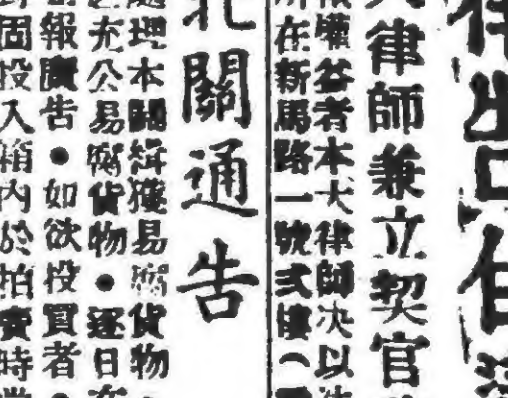 出口
律師兼立契官
權益者本大律師决以
所在新馬路一號弍樓（
北關通告
處理本關緝獲易腐貨物
充公易腐貨物●逐日在
報廣告●如欲投買者●
固投入箱內於拍賣時當